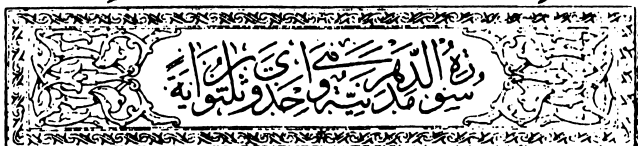 سورة الدهر مدنية وهى احدى وثلثون اية